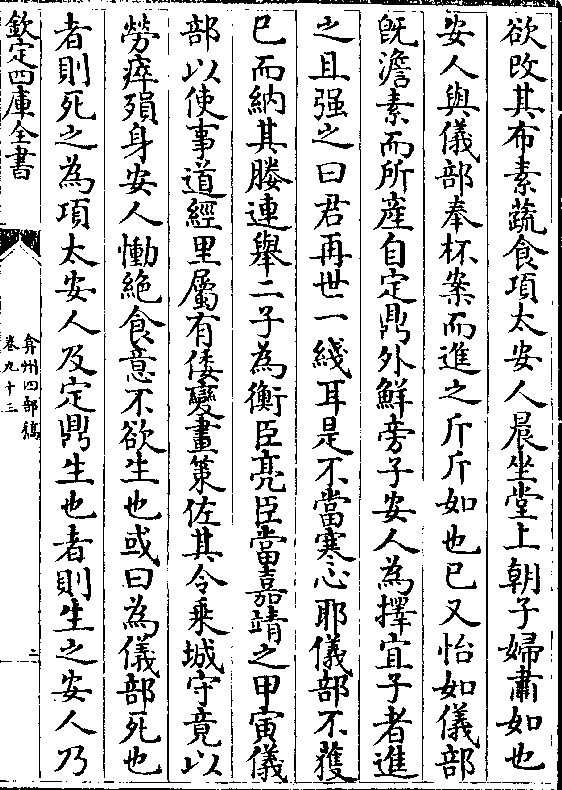 欲改其布素蔬食項太安人晨坐堂上朝子婦肅如也
安人與儀部奉杯案而進之斤斤如也已又怡如儀部
既澹素而所產自定鼎外鮮旁子安人為擇宜子者進
之且强之曰君再世一綫耳是不當寒心耶儀部不獲
已而納其媵連舉二子為衡臣亮臣當嘉靖之甲寅儀
部以使事道經里屬有倭變畫策佐其令乘城守竟以
勞瘁殞身安人慟絶食意不欲生也或曰為儀部死也
者則死之為項太安人及定鼎生也者則生之安人乃
欽定四庫全書
弇州四部稿
卷九十三
二